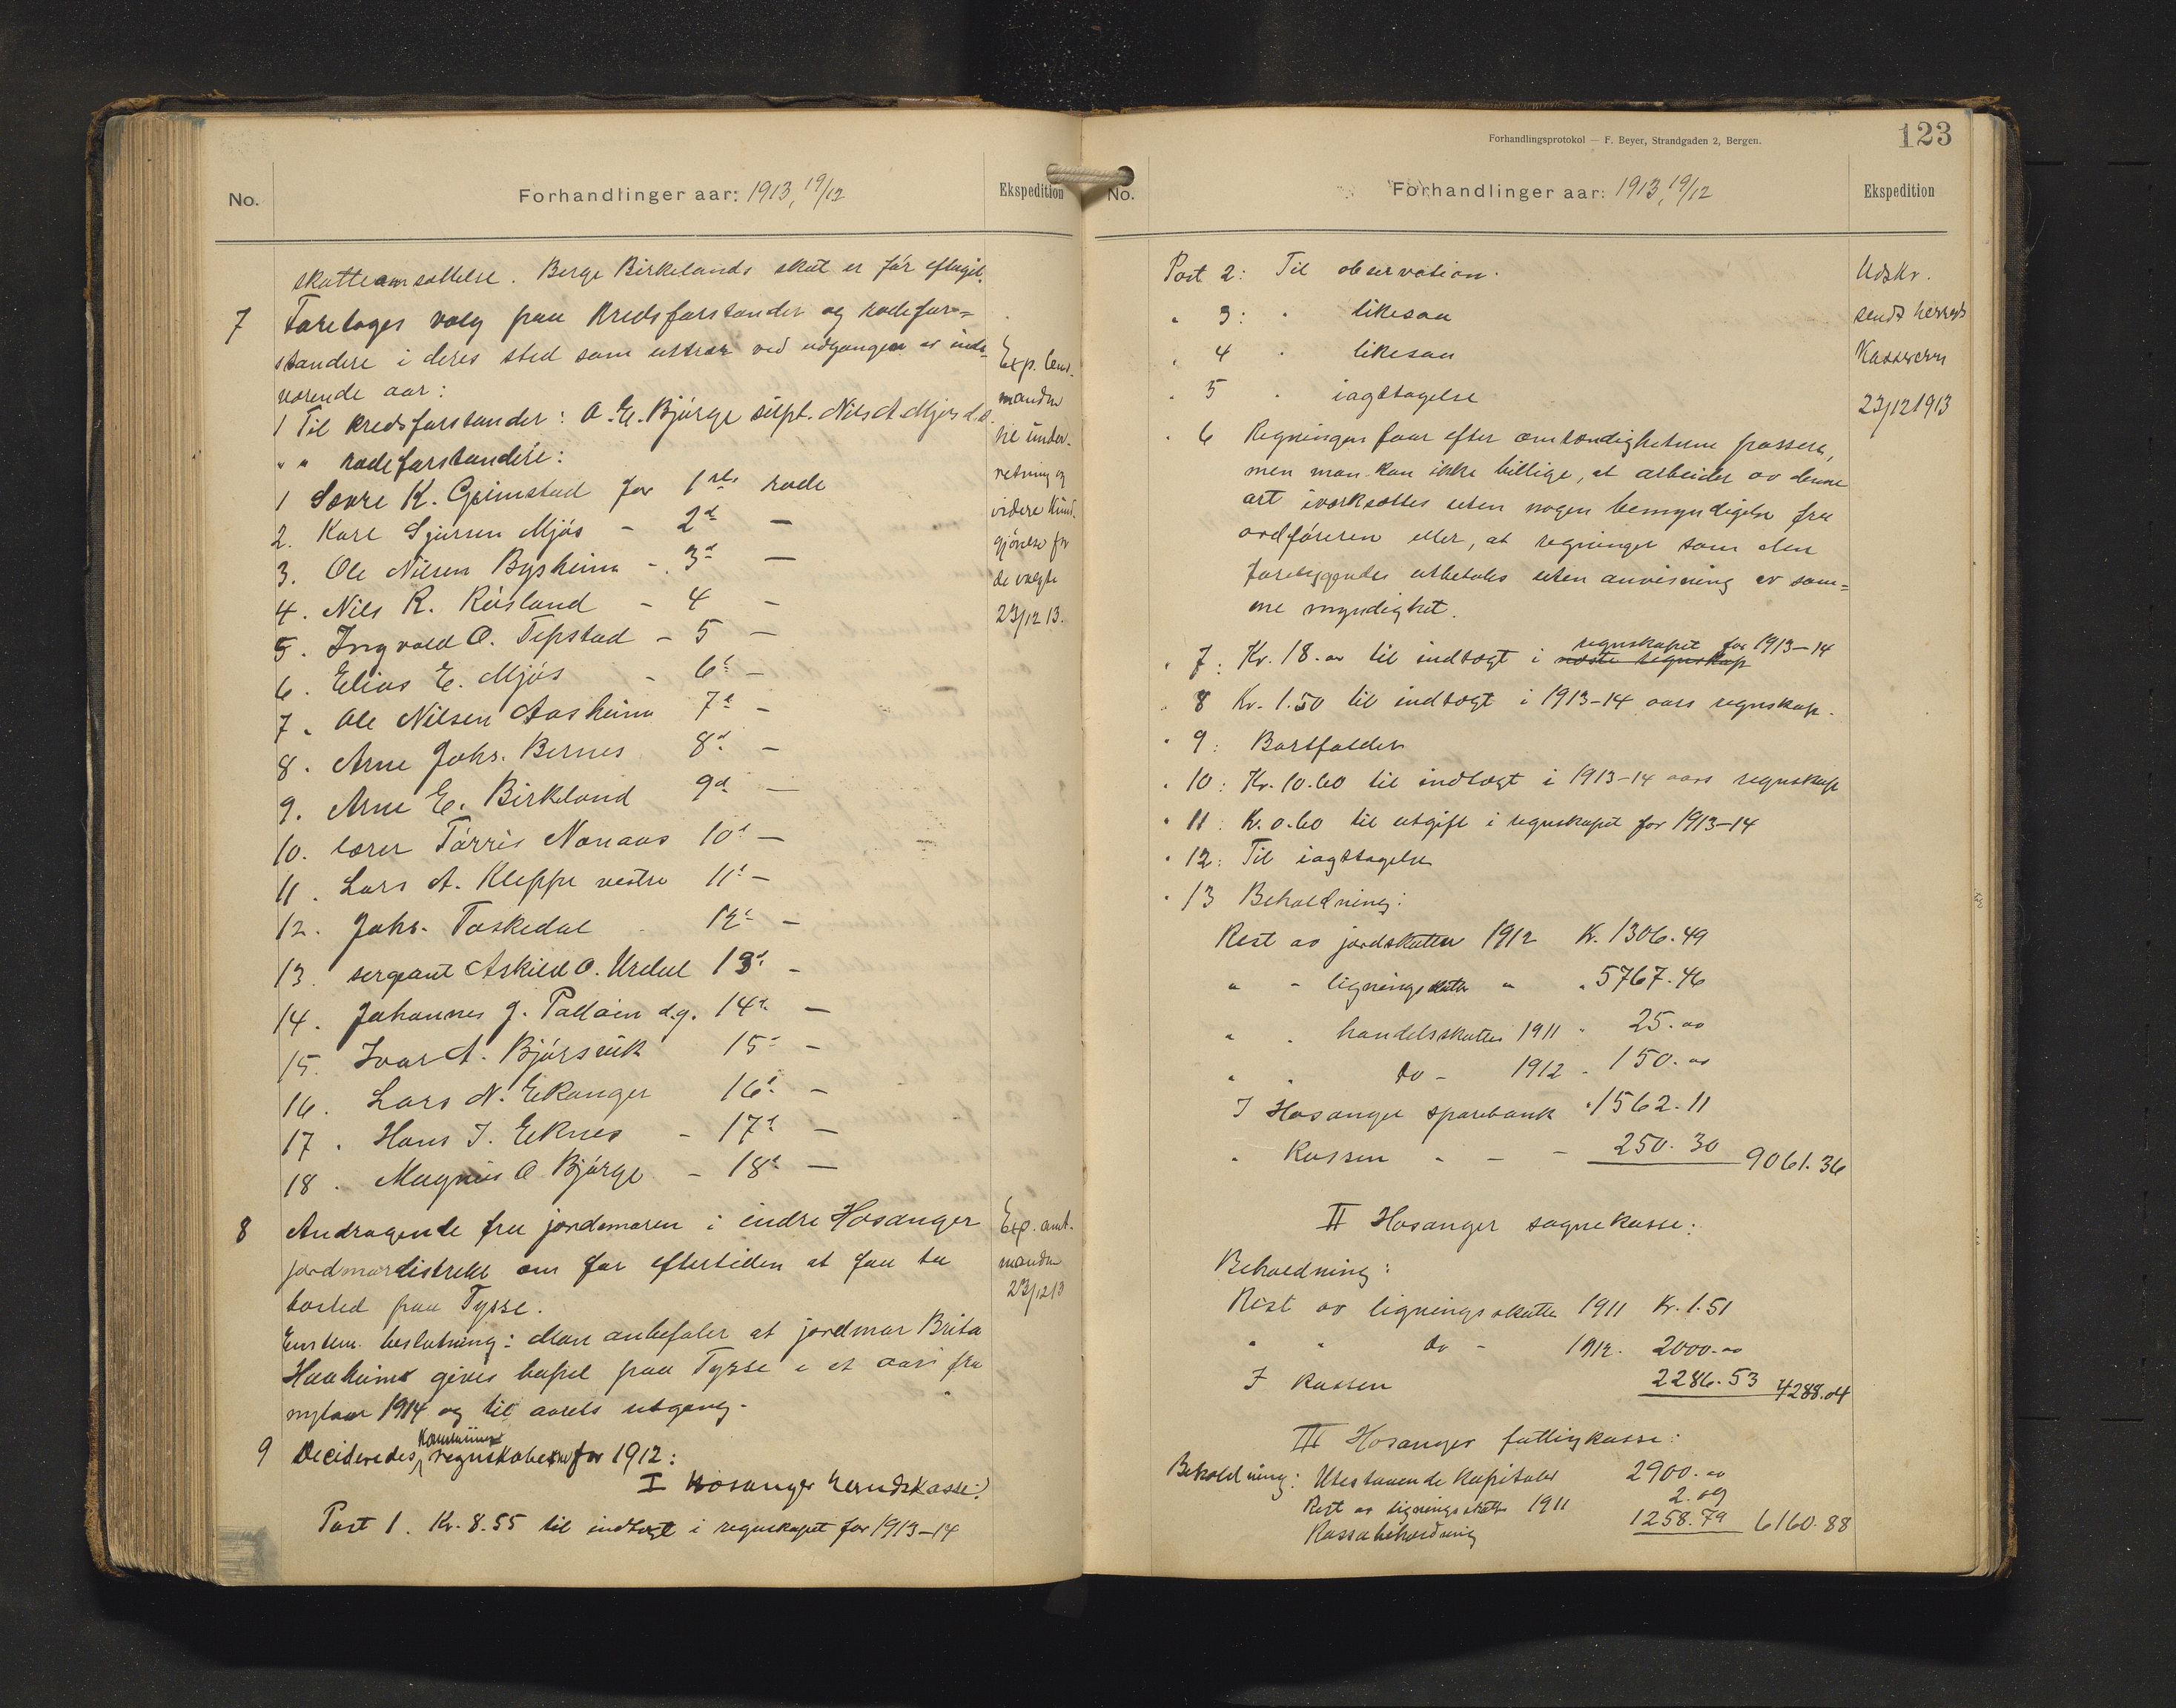 No.
Forhandlinger aar: 1913, 19/12
Ekspedition
skatteansættelse. Berge Birkelands skat er før eftagit.
7 Foretoges valg paa kredsforstander og rodefor=
standere i deres sted som uttrær ved udgangen av inde-
værende aar:
1 Til kredsforstander: O. E. Bjørge supl. Nils A. Mjøs d.e.
" " rodeforstandere:
1 Sævre K. Grimstad for 1ste rode
2. Karl Sjursen Mjøs - 2d —
3. Ole Nilsen Bysheim - 3d —
4. Nils R. Røsland - 4 —
5. Ingvald O. Tepstad - 5 —
6. Elias E. Mjøs - 6t —
7. Ole Nilsen Aasheim 7d —
8. Arne Johs. Bernes 8d —
9. Arne E. Birkeland 9d —
10. lærer Tørris Nonaas 10d —
11. Lars A. Kleppe vestre 11t —
12. Johs. Toskedal 12t —
13. sergeant Askild O. Urdal 13d —
14. Johannes J. Padøin d.y. 14d —
15. Ivar A. Bjørsvik 15d —
16. Lars N. Eikanger 16d —
17. Hans J. Eknes - 17d —
18. Magnus O Bjørge - 18d —
Exp. lens-
manden
til under-
retning og
videre kund-
gjørelse for
de valgte
23/12 13.
8 Andragende fra jordemoren i indre Hosanger
jordmordistrikt om for eftertiden at faa ta
bosted paa Tysse.
Enstem. beslutning: Man anbefaler at jordmor Brita
Haaheim gives bopel paa Tysse i et aar fra
nytaar 1914 og til aarets utgang.
Exp. amt-
manden
23/12 13
9 Decideredes kommune regnskaberne for 1912:
I Hosanger herredskasse:
Post 1. Kr. 8.55 til indtægt i regnskapet for 1913-14
Forhandlingsprotokol — F. Beyer, Strandgaden 2, Bergen.
123
No.
Forhandlinger aar: 1913, 19/12
Ekspedition
Post 2: Til observation.
" 3: " likesaa
" 4 " likesaa
" 5 " iagttagelse
" 6 Regningen faar efter omstændigheterne passere,
men man kan ikke billige, at arbeider av denne
art iverksættes uten nogen bemyndigelse fra
ordføreren eller, at regninger som den
foreliggende utbetales uten anvisning av sam=
me myndighet.
" 7: Kr. 18.oo til indtægt i næste regnskap regnskapet for 1913-14
" 8 Kr. 1.50 til indtægt i 1913-14 aars regnskap.
" 9: Bortfalder
" 10: Kr. 10.60 til indtægt i 1913-14 aars regnskap
" 11: Kr. 0.60 til utgift i regnskapet for 1913-14
" 12: Til iagttagelse
" 13 Beholdning:
Rest av jordskatten 1912 Kr. 1306.49
" - ligningsskatten " " 5767.46
" " handelsskatten 1911 " 25.oo
" " do - 1912 - 150.oo
I Hosanger sparebank " 1562.11
" Kassen " - - 250.30 9061.36
II Hosanger sognekasse:
Beholdning:
Rest av ligningsskatten 1911 Kr. 1.51
" " do - 1912. 2000.oo
I kassen 2286.53 4288.04
III Hosanger fattigkasse:
Beholdning: Utestaaende kapitaler 2900.oo
Rest av ligningsskatten 1911 2.09
Kassabeholdning 1258.79 6160.88
Udskr.
sendt herreds
Kassereren
23/12 1913